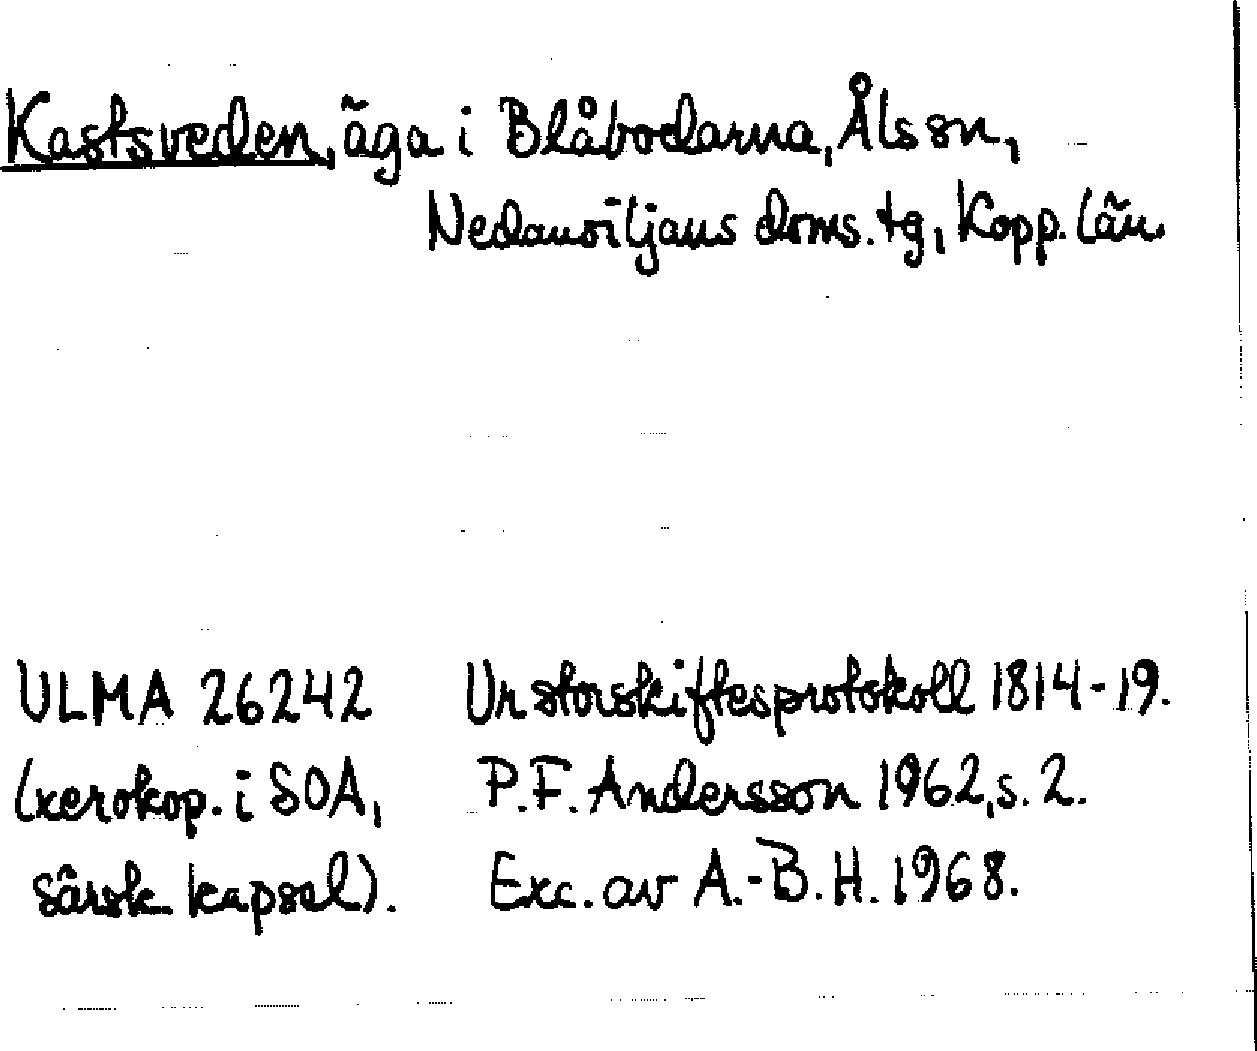 Kastsveden, äga i Blåbodarna, Åls sn,
Nedansiljans doms. tg, Kopp. län.
ULMA 26242 Ur storskiftesprotokoll 1814-19.
(xerokop. i SOA, P.F. Andersson 1962, s. 2.
särsk. kapsel). Exc. av A.-B. H. 1968.